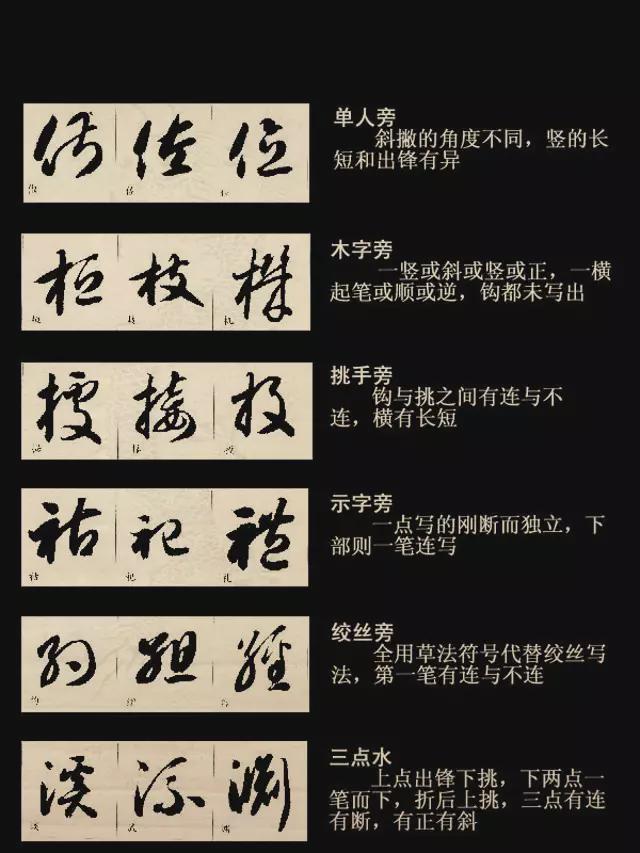 佐 位
单人旁
斜撇的角度不同，竖的长
短和出锋有异
桓 枝 機
木字旁
一竖或斜或竖或正，一横
起笔或顺或逆，钩都未写出
接 投
挑手旁
钩与挑之间有连与不
连，横有长短
祜 祀 禮
示字旁
一点写的刚断而独立，下
部则一笔连写
約 經
绞丝旁
全用草法符号代替绞丝写
法，第一笔有连与不连
溪 淵
三点水
上点出锋下挑，下两点一
笔而下，折后上挑，三点有连
有断，有正有斜